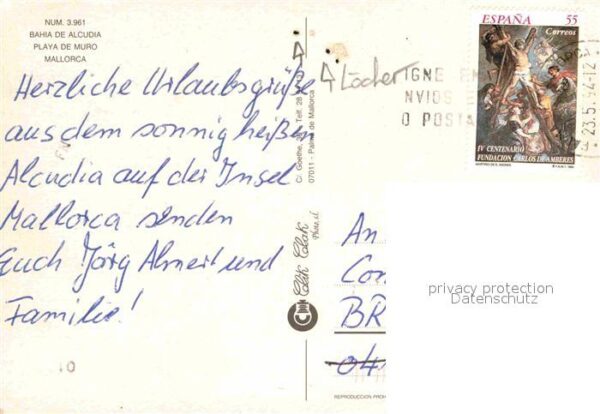 NUM. 3.961
BAHIA DE ALCUDIA
PLAYA DE MURO
MALLORCA
Herzliche Urlaubsgrüße
aus dem sonnig heißen
Alcudia auf der Insel
Mallorca senden
Euch Jörg Almert und
Familie!
Löcher
ESPAÑA 55
Correos
IV CENTENARIO
FUNDACION CARLOS DE AMBERES
IGNE
NVIOS
O POSTA
23.5.94-12
C/ Goethe, Telf. 28
07011 - Palma de Mallorca
Clik Clak
An
Con
BR
04
privacy protection
Datenschutz
10